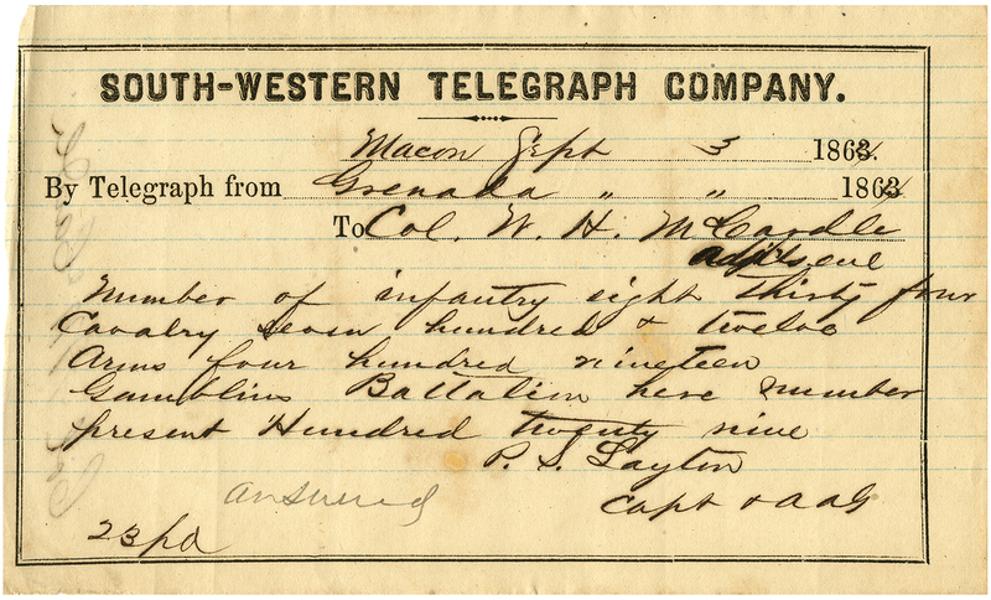 SOUTH-WESTERN TELEGRAPH COMPANY.
Macon Sept 3 1864.
By Telegraph from Grenada " " 1864
To Col. W. H. McCardle
Number of infantry eight thirty four
Cavalry seven hundred & twelve
Arms four hundred nineteen
Gamblins Battalion here number
present Hundred twenty nine
P. S. Layton
Capt & AAG
answered
23 pd